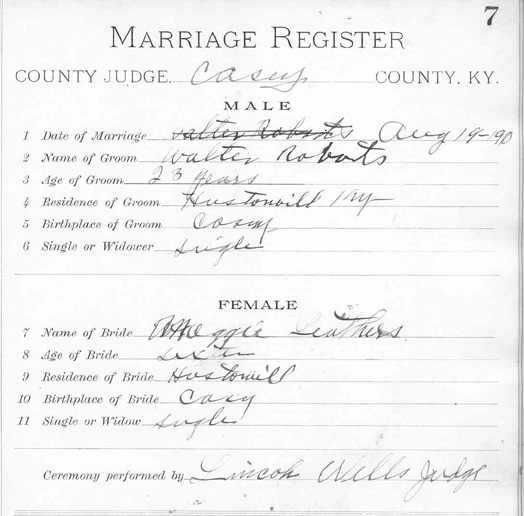 7
MARRIAGE REGISTER
COUNTY JUDGE, Casey COUNTY, KY.
MALE
1 Date of Marriage Walter Roberts Aug 19-190
2 Name of Groom Walter Roberts
3 Age of Groom 23 years
4 Residence of Groom Hustonvill Ky
5 Birthplace of Groom Casey
6 Single or Widower single
FEMALE
7 Name of Bride Maggie Leathers
8 Age of Bride
9 Residence of Bride Hustonvill
10 Birthplace of Bride Casy
11 Single or Widow single
Ceremony performed by Lincoln Wells Judge